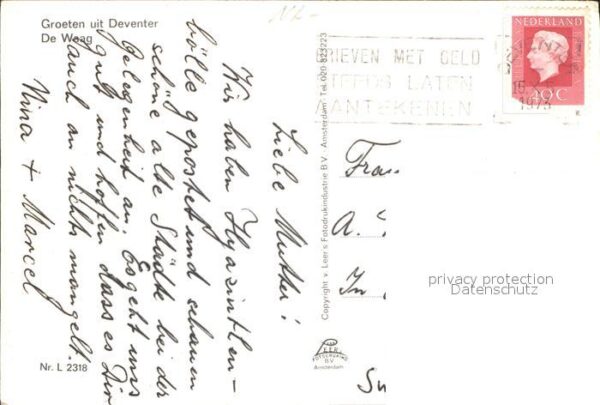 Groeten uit Deventer
De Waag
Liebe Mutter!
Wir haben Hyazinthen-
bölle gepostet und schauen
schöne alte Städte bei der
Gelegenheit an. Es geht uns
gut und hoffen dass es Dir
auch an nichts mangelt.
Nina + Marcel
Nr. L 2318
Copyright v. Leer's Fotodrukindustrie B.V. Amsterdam Tel. 020 823223
LEER
FOTODRUKIND
BV
Amsterdam
12.-
BRIEVEN MET GELD
STEEDS LATEN
AANTEKENEN
1973
NEDERLAND
40C
Frau
A.
In
privacy protection
Datenschutz